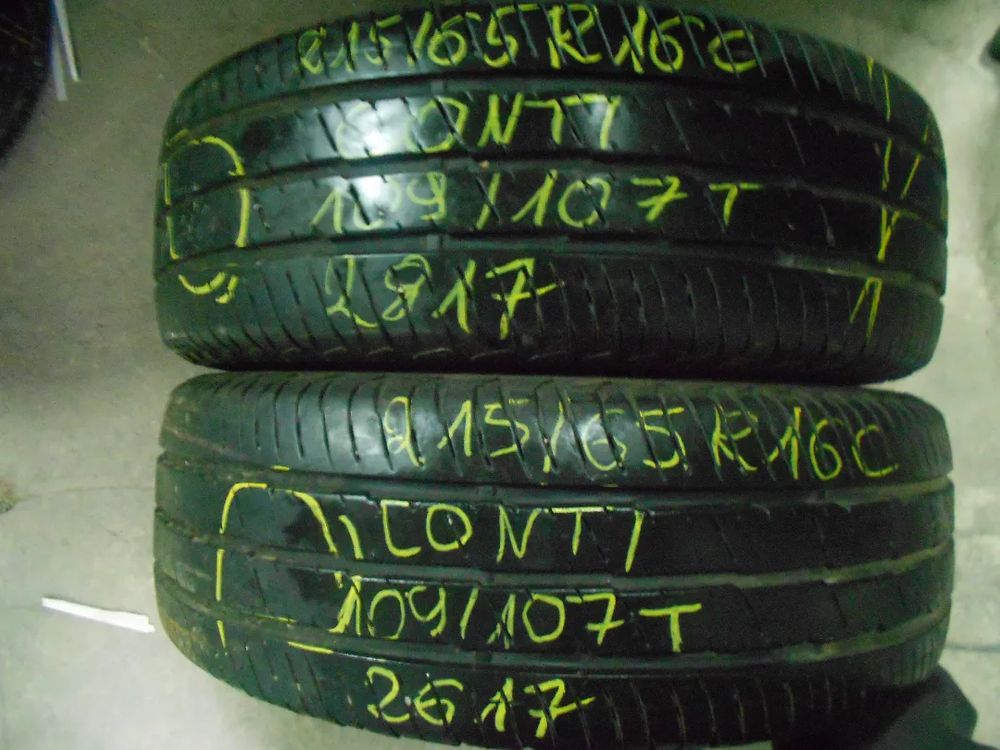 215/65 R 16 C
CONTI
109/107 T
2817
215/65 R 16 C
CONTI
109/107 T
2617